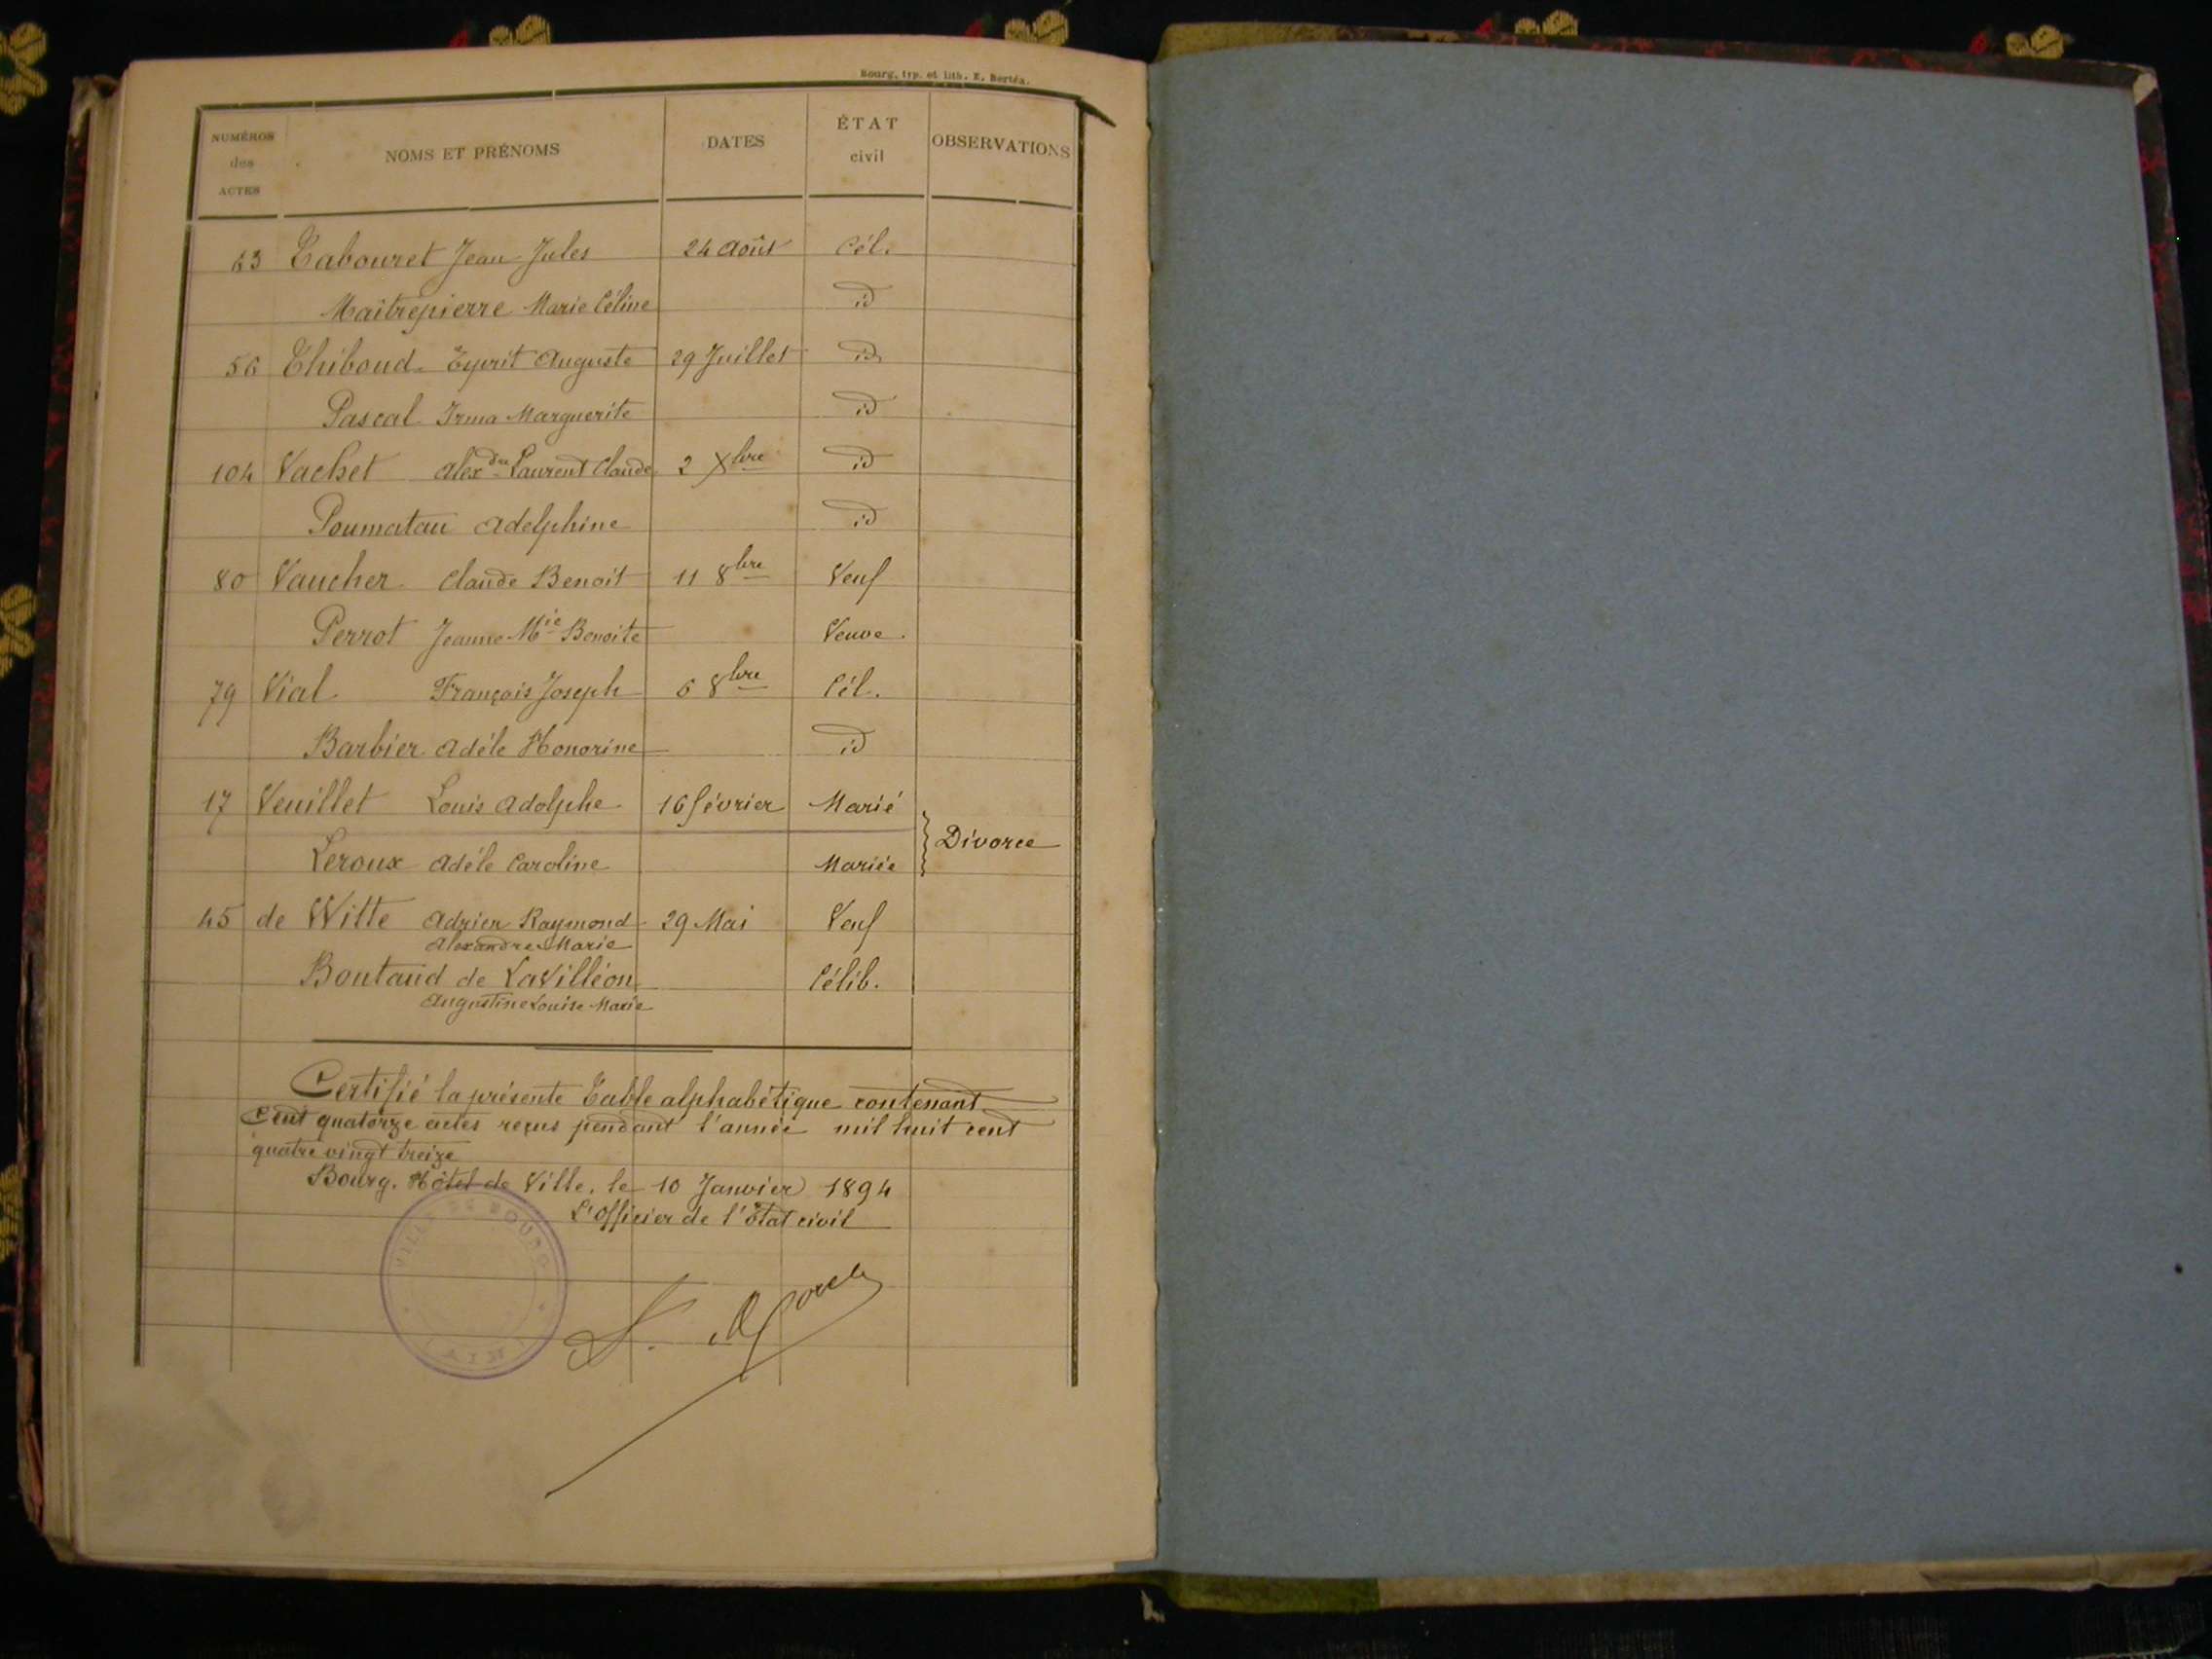 Bourg, typ. et lith. E. Bertéa.
NUMÉROS des ACTES NOMS ET PRÉNOMS DATES ÉTAT civil OBSERVATIONS
63 Tabouret Jean Jules 24 Août Cél.
Maîtrepierre Marie Céline id
56 Thiboud Esprit Auguste 29 Juillet id
Pascal Irma Marguerite id
104 Vachet Alexdre Laurent Claude 2 Xbre id
Poumatau Adelphine id
80 Vaucher Claude Benoit 11 8bre Veuf
Perrot Jeanne Mie Benoite Veuve
79 Vial François Joseph 6 8bre Cél.
Barbier Adèle Honorine id
17 Veuillet Louis Adolphe 16 février Marié
Divorce
Leroux Adèle Caroline Mariée
45 de Witte Adrien Raymond 29 Mai Veuf
Alexandre Marie
Boutaud de LaVilléon Célib.
Augustine Louise Marie
Certifié la présente Table alphabétique contenant
Cent quatorze actes reçus pendant l'année mil huit cent
quatre vingt treize
Bourg. Hôtel de Ville, le 10 Janvier 1894
L'Officier de l'Etat civil
VILLE DE BOURG
(AIN)